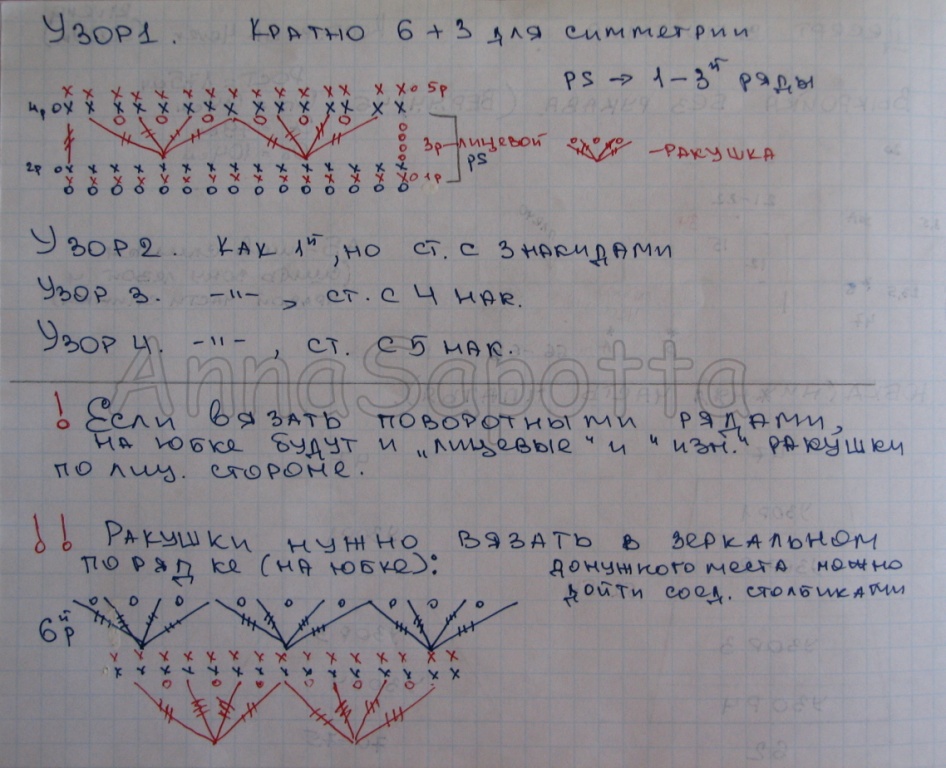 Узор 1. Кратно 6 + 3 для симметрии
PS → 1 – 3й ряды
5р
4р
3р – лицевой
PS
– ракушка
2р
1р
Узор 2. Как 1й, но ст. с 3 накидами
Узор 3. –"– , ст. с 4 нак.
Узор 4. –"– , ст. с 5 нак.
AnnaSabotta
! Если вязать поворотными рядами,
на юбке будут и „лицевые" и "изн." ракушки
по лиц. стороне.
!! Ракушки нужно вязать в зеркальном
порядке (на юбке):
до нужного места можно
дойти соед. столбиками
6й р